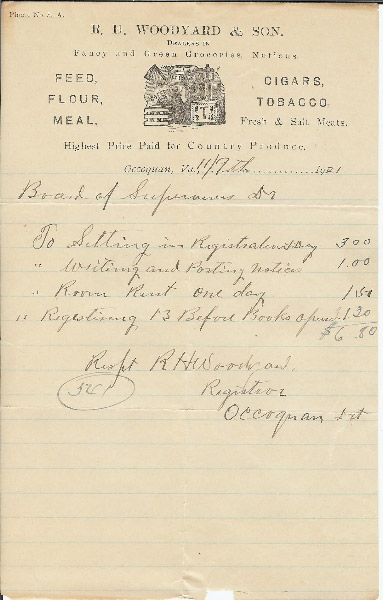 R. H. WOODYARD & SON.
DEALERS IN
Fancy and Green Groceries, Notions.
FEED,
FLOUR,
MEAL,
CIGARS,
TOBACCO
Fresh & Salt Meats.
Highest Price Paid for Country Produce.
Occoquan, Va., 11/9th 1921
Board of Supervisors Dr
To Setting in Registration day 3 00
" Writing and Posting notices 1.00
" Room Rent one day 1 50
" Registering 13 Before Books opened 1 30
$6 80
Respt R H Woodyard
Registrar
Occoquan Dst